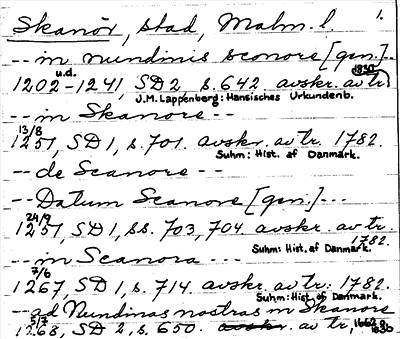 Skanör, stad, Malm. l. 1.
-- in nundinis sconore [gen.]..
1202 u.d. -1241, SD 2, s. 642. avskr. av tr. 1830
J.M. Lappenberg: Hansisches Urkundenb.
-- in Skanore --
13/8
1251, SD 1, s. 701. avskr. av tr. 1782.
Suhm: Hist. af Danmark.
-- de Scanore --
-- Datum Scanore [gen.] ---
24/9
1251, SD 1, ss. 703, 704. avskr. av tr. 1782.
Suhm: Hist. af Danmark.
-- in Scanora ---
7/6
1267, SD 1, s. 714. avskr. av tr. 1782.
Suhm: Hist. af Danmark.
-- ad Nundinas nostras in Skanore
1268, SD 2, s. 650. avskr. av tr,